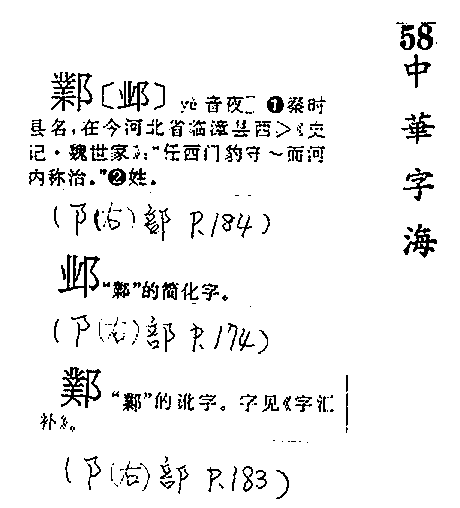 58
中華字海
鄴〔邺〕 yè 音夜 ❶秦时
县名,在今河北省临漳县西>《史
记·魏世家》:“任西门豹守~而河
内称治。”❷姓。
(阝(右)部 P.184)
邺“鄴”的简化字。
(阝(右)部 P.174)
“鄴”的讹字。字见《字汇
补》。
(阝(右)部 P.183)